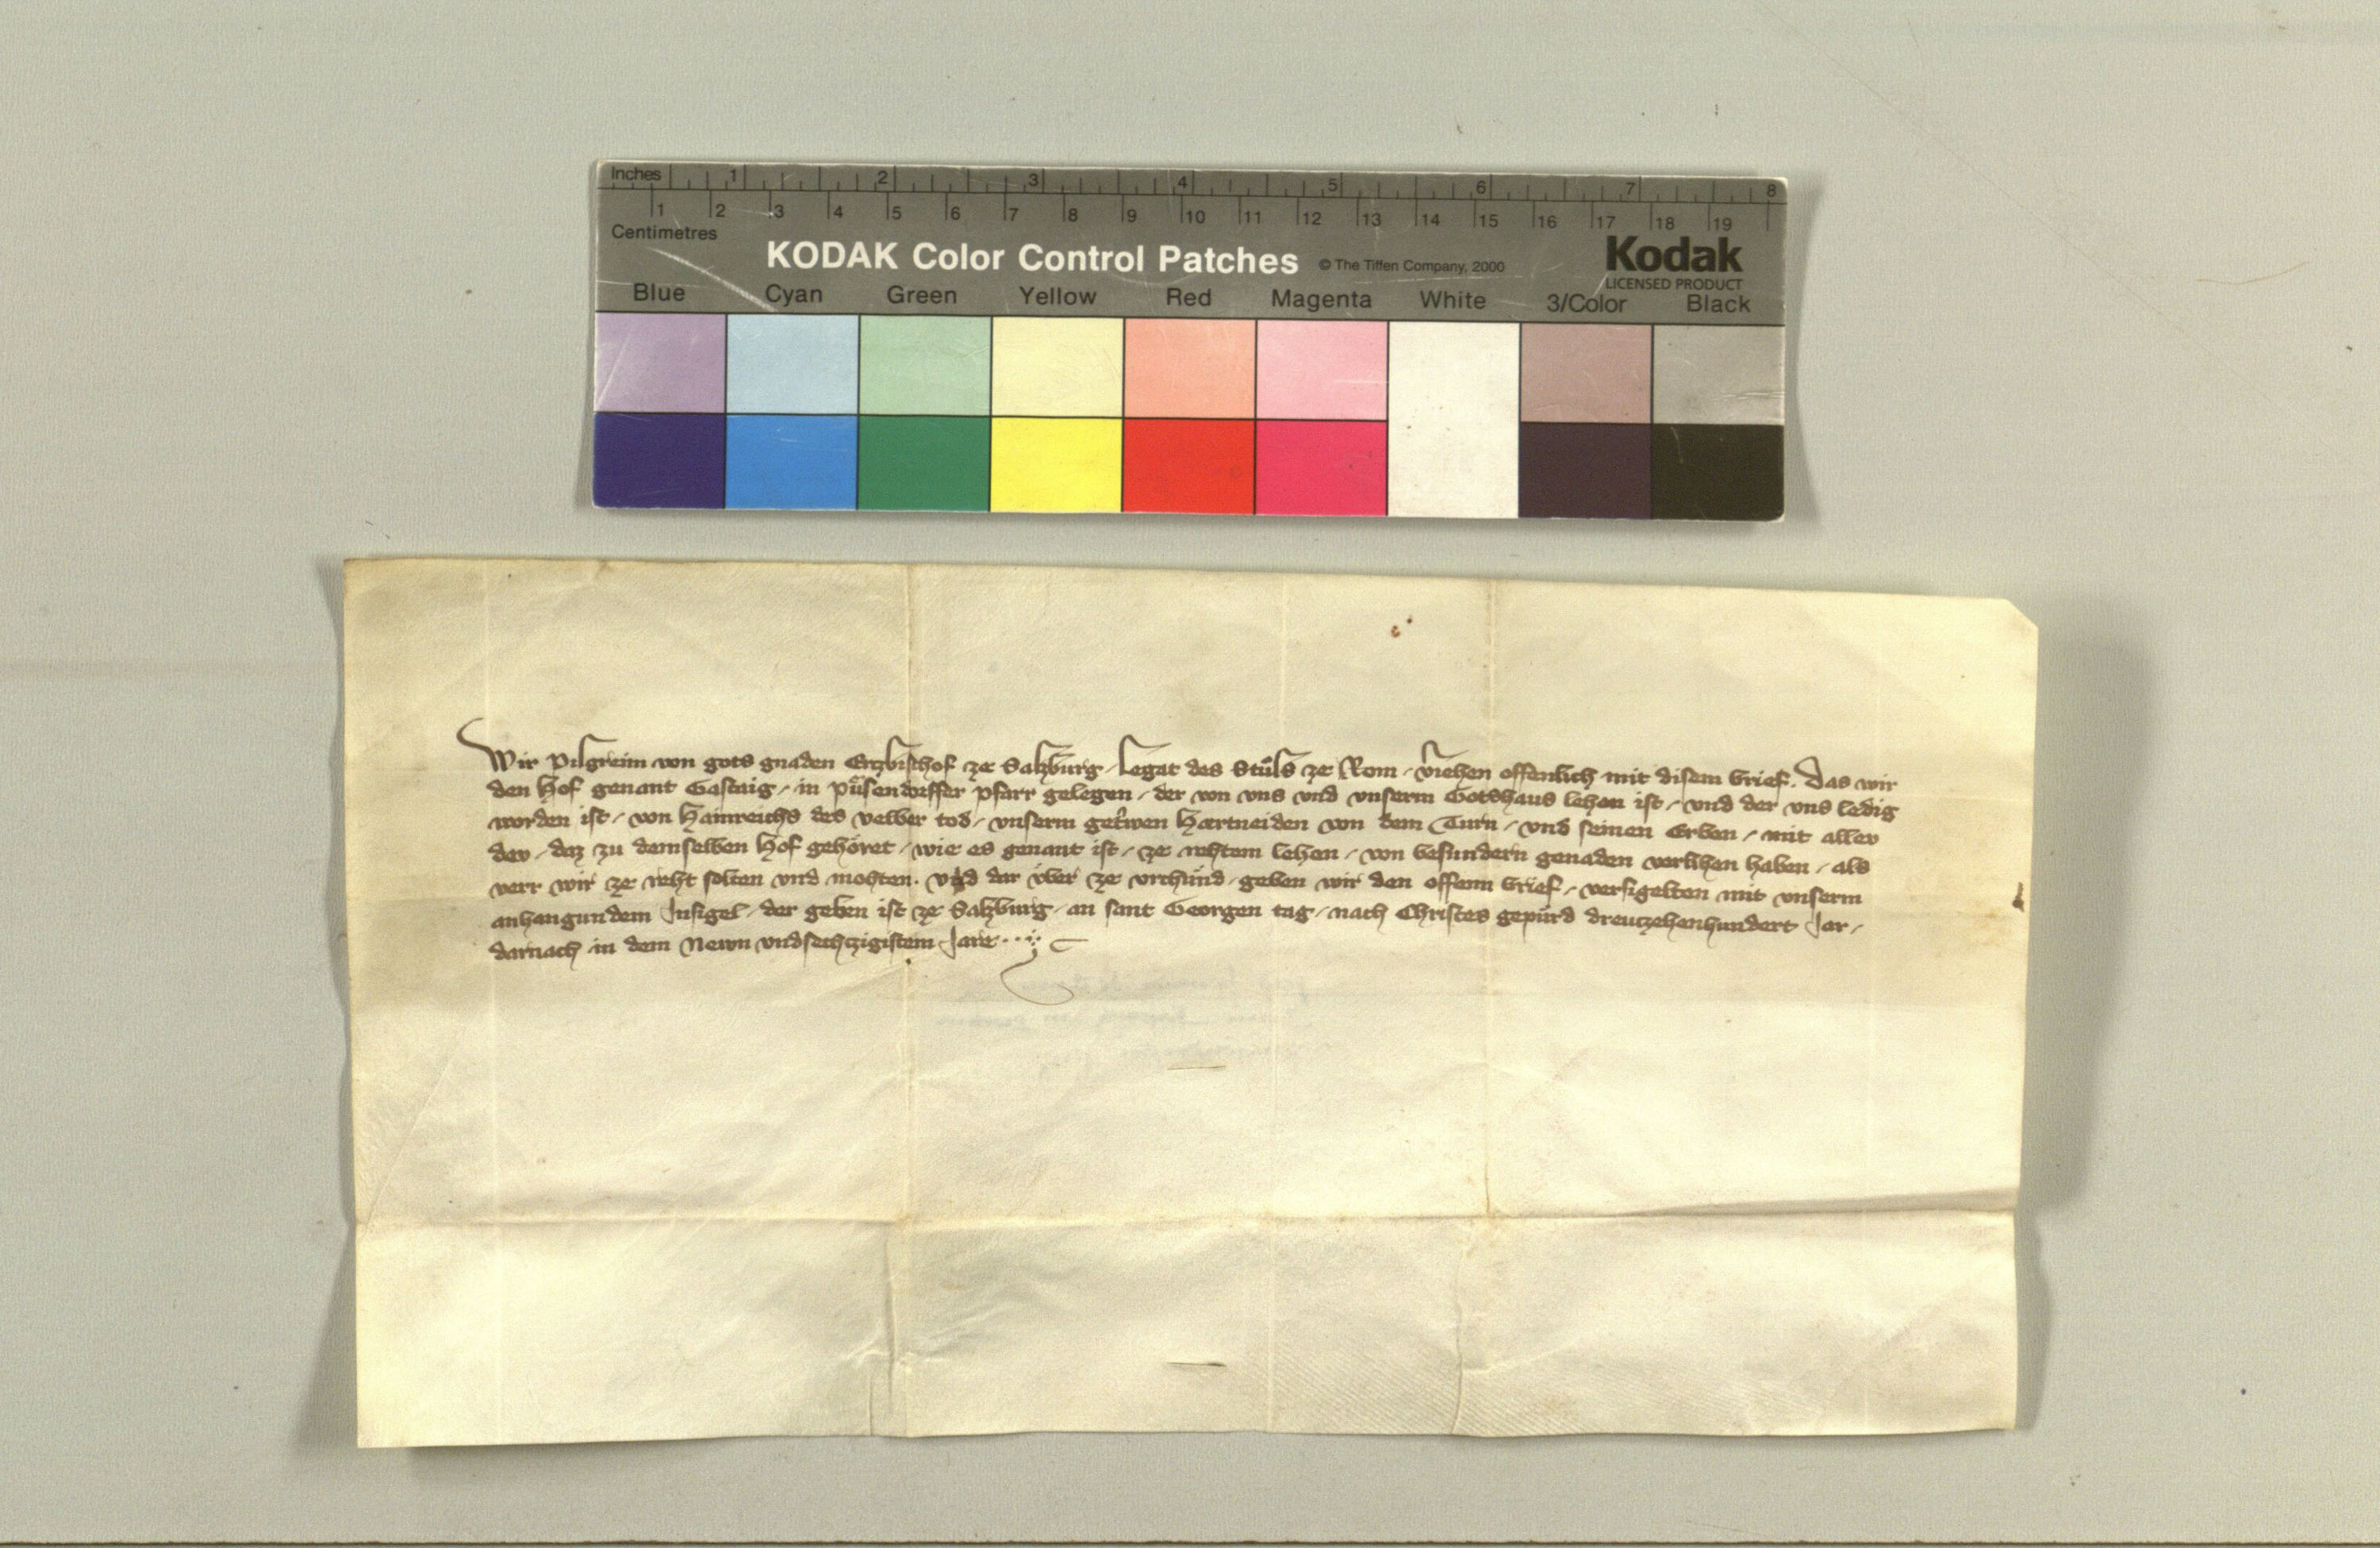 Inches 1 2 3 4 5 6 7 8
1 2 3 4 5 6 7 8 9 10 11 12 13 14 15 16 17 18 19
Centimetres
KODAK Color Control Patches © The Tiffen Company, 2000 Kodak
LICENSED PRODUCT
Blue Cyan Green Yellow Red Magenta White 3/Color Black
Wir Pilgreim von gots gnaden Erzbischof ze Salzburg / Legat des Stůls ze Rom / vriehen offenlich mit disem brief. Das wir
den Hof genant Gastaig / in Půsendorffer pfarr gelegen / der von vns vnd vnserm Gotshaus lehen ist / vnd der vns ledig
worden ist / von Hainreichs des velber tod / vnserm getrwen Hertneiden von dem Turn / vnd seinen Erben / mit aller
dev / daz zu demselben Hof gehöret / wie es genant ist / ze rehtem lehen / von besundern genaden verlihen haben / als
verr wir ze reht solten vnd mohten. vnd dar vber ze vrchund / geben wir den offenn brief / versigelten mit vnserm
anhangundem Insigel / der geben ist ze Salzburg / an sant Georgen tag / nach Christes gepurd dreutzehenhundert Jar /
darnach in dem Newn vndsechtzigistem Jare